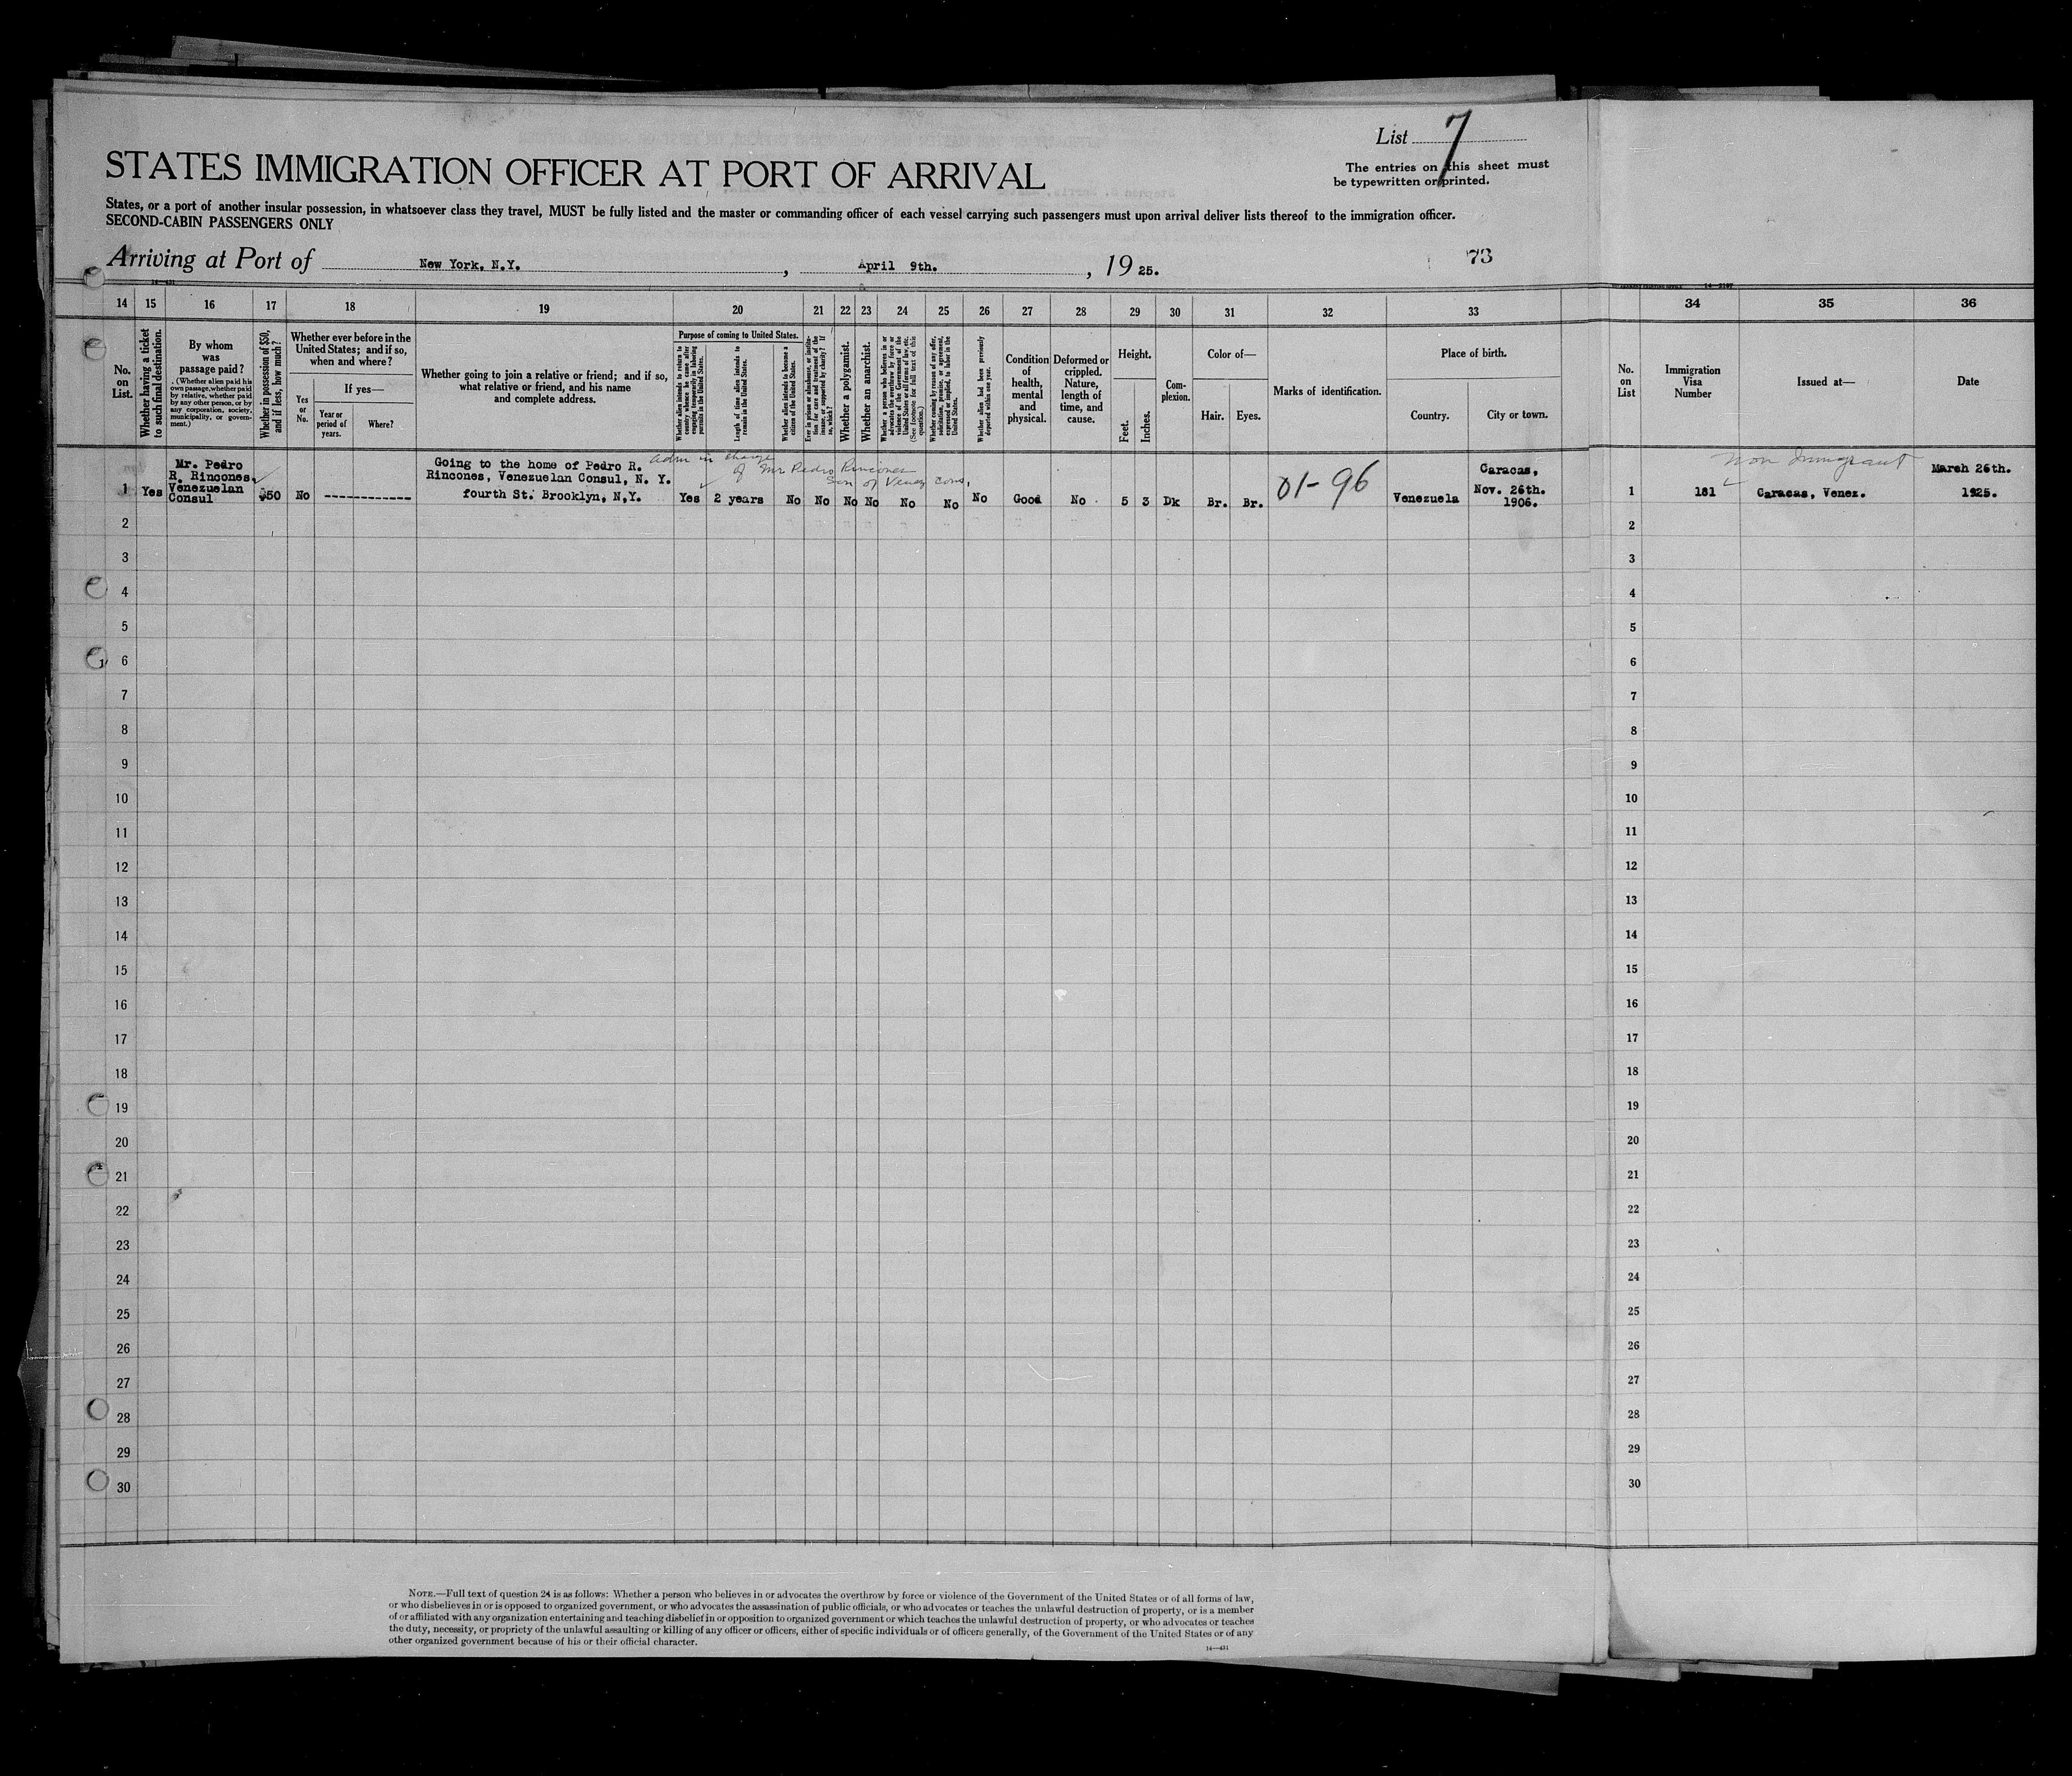 List 7
The entries on this sheet must
be typewritten or printed.
STATES IMMIGRATION OFFICER AT PORT OF ARRIVAL
States, or a port of another insular possession, in whatsoever class they travel, MUST be fully listed and the master or commanding officer of each vessel carrying such passengers must upon arrival deliver lists thereof to the immigration officer.
SECOND-CABIN PASSENGERS ONLY
Arriving at Port of New York, N.Y. , April 9th. , 19 25.
73
14 15 16 17 18 19 20 21 22 23 24 25 26 27 28 29 30 31 32 33 34 35 36
No.
on
List.
Whether having a ticket
to such final destination.
By whom
was
passage paid?
(Whether alien paid his
own passage, whether paid
by relative, whether paid
by any other person, or by
any corporation, society,
municipality, or govern-
ment.)
Whether in possession of $50,
and if less, how much?
Whether ever before in the
United States; and if so,
when and where?
Yes
or
No.
If yes—
Year or
period of
years.
Where?
Whether going to join a relative or friend; and if so,
what relative or friend, and his name
and complete address.
Purpose of coming to United States.
Whether alien intends to return to
country whence he came after
engaging temporarily in laboring
pursuits in the United States.
Length of time alien intends to
remain in the United States.
Whether alien intends to become a
citizen of the United States.
Ever in prison or almshouse, or institu-
tion for care and treatment of the
insane, or supported by charity? If
so, which?
Whether a polygamist.
Whether an anarchist.
Whether a person who believes in or
advocates the overthrow by force or
violence of the Government of the
United States or all forms of law, etc.
(See footnote for full text of this
question.)
Whether coming by reason of any offer,
solicitation, promise, or agreement,
expressed or implied, to labor in the
United States.
Whether alien had been previously
deported within one year.
Condition
of
health,
mental
and
physical.
Deformed or
crippled.
Nature,
length of
time, and
cause.
Height.
Feet.
Inches.
Com-
plexion.
Color of—
Hair.
Eyes.
Marks of identification.
Place of birth.
Country.
City or town.
No.
on
List
Immigration
Visa
Number
Issued at—
Date
1
Yes
Mr. Pedro
R. Rincones.
Venezuelan
Consul
$50
No
-------------
Going to the home of Pedro R.
Rincones, Venezuelan Consul, N. Y.
fourth St. Brooklyn, N.Y.
adm in charge
of Mr Pedro Rincones
Son of Venez Cons,
Yes 2 years No No No No No No No Good No 5 3 Dk Br. Br.
01-96
Venezuela
Caracas,
Nov. 26th.
1906.
Non Immigrant
1
181
Caracas, Venez.
March 26th.
1925.
2 2
3 3
4 4
5 5
6 6
7 7
8 8
9 9
10 10
11 11
12 12
13 13
14 14
15 15
16 16
17 17
18 18
19 19
20 20
21 21
22 22
23 23
24 24
25 25
26 26
27 27
28 28
29 29
30 30
NOTE.—Full text of question 24 is as follows: Whether a person who believes in or advocates the overthrow by force or violence of the Government of the United States or of all forms of law,
or who disbelieves in or is opposed to organized government, or who advocates the assassination of public officials, or who advocates or teaches the unlawful destruction of property, or is a member
of or affiliated with any organization entertaining and teaching disbelief in or opposition to organized government or which teaches the unlawful destruction of property, or who advocates or teaches
the duty, necessity, or propriety of the unlawful assaulting or killing of any officer or officers, either of specific individuals or of officers generally, of the Government of the United States or of any
other organized government because of his or their official character.
14—431